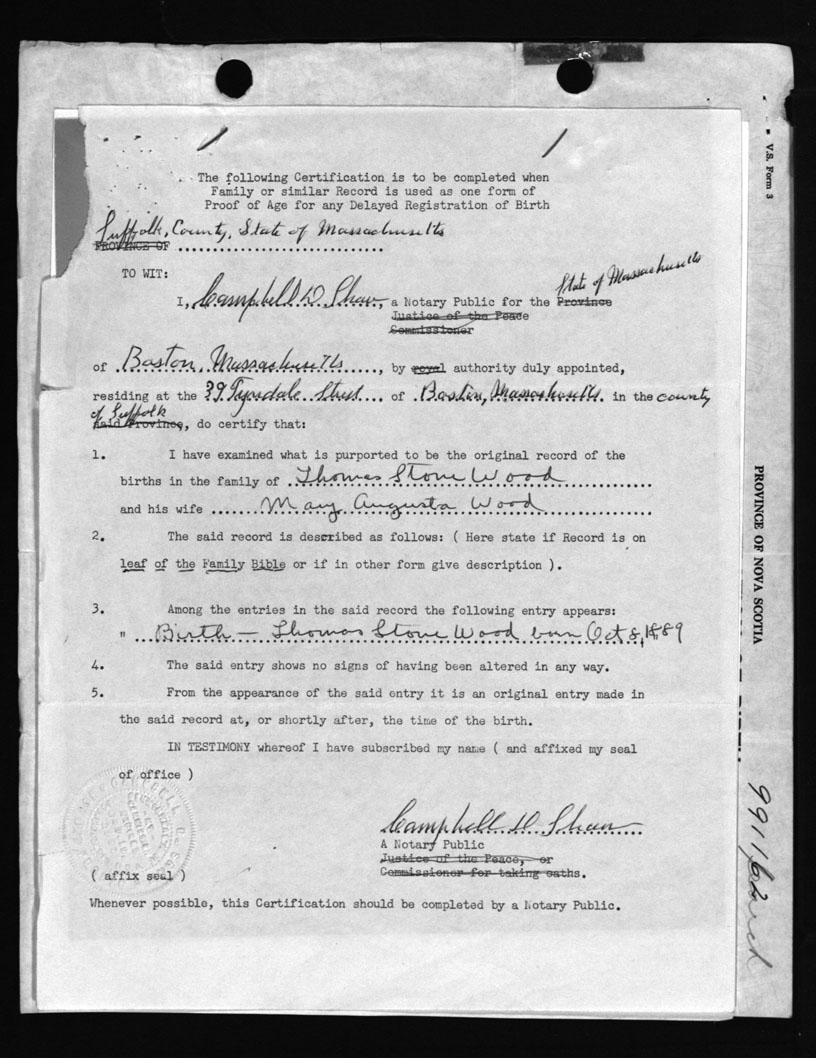 The following Certification is to be completed when
Family or similar Record is used as one form of
Proof of Age for any Delayed Registration of Birth
Suffolk, County, State of Massachusetts
PROVINCE OF ..............................
TO WIT:
State of Massachusetts
I, Campbell D Shaw, a Notary Public for the Province
Justice of the Peace
Commissioner
of Boston, Massachusetts ....., by royal authority duly appointed,
residing at the 39 Street ... of Boston, Massachusetts. in the county
of Suffolk
said Province, do certify that:
1. I have examined what is purported to be the original record of the
births in the family of Thomas Stone Wood
and his wife Mary Augusta Wood
2. The said record is described as follows: ( Here state if Record is on
leaf of the Family Bible or if in other form give description ).
3. Among the entries in the said record the following entry appears:
" Birth — Thomas Stone Wood born Oct 8, 1889
4. The said entry shows no signs of having been altered in any way.
5. From the appearance of the said entry it is an original entry made in
the said record at, or shortly after, the time of the birth.
IN TESTIMONY whereof I have subscribed my name ( and affixed my seal
of office )
Campbell D Shaw
A Notary Public
Justice of the Peace, or
Commissioner for taking oaths.
( affix seal )
Whenever possible, this Certification should be completed by a Notary Public.
V.S. Form 3
PROVINCE OF NOVA SCOTIA
991162